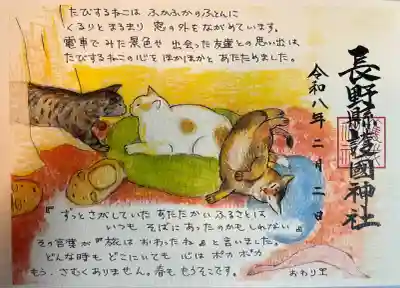 たびするねこは ふかふかのふとんに
くるりとまるまり 窓の外をながめています。
電車でみた景色や 出会った友達との思い出は
たびするねこの心をぽかぽかと あたためました。
長野縣護國神社
令和八年二月二日
『ずっとさがしていた あたたかいふるさとは
いつも そばにあったのかもしれない』
その言葉が『旅は おわったね』と言いました。
どんな時も どこにいても 心は ポカポカ
もう、さむくありません。春も もうそこです。
おわり